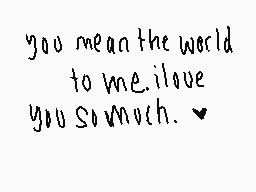 you mean the world
to me. i love
you so much. ♥